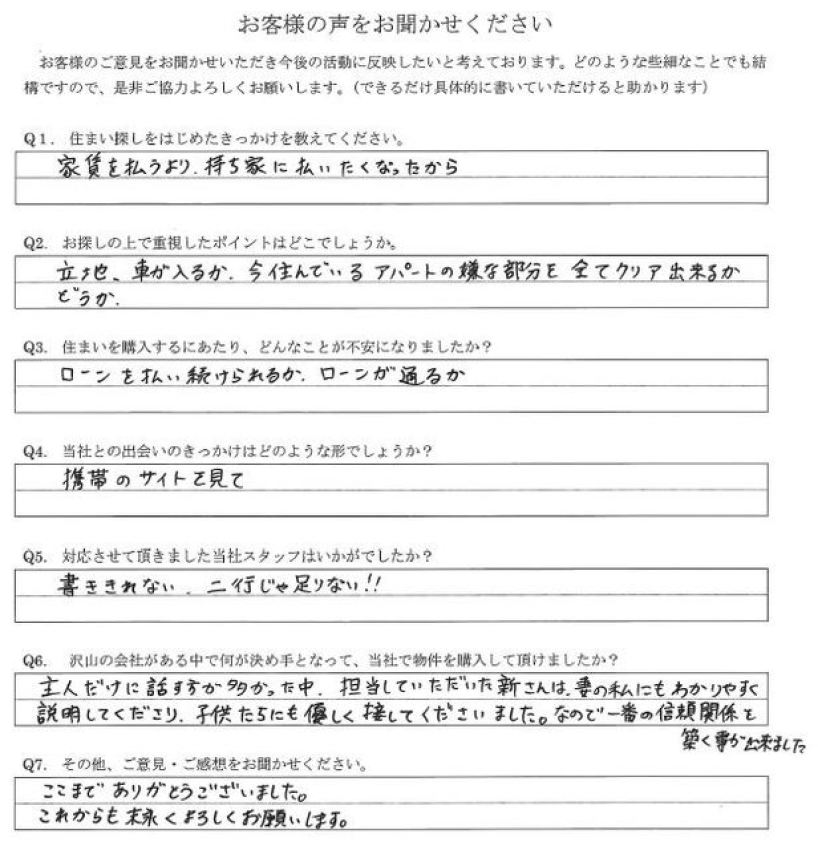 お客様の声をお聞かせください
お客様のご意見をお聞かせいただき今後の活動に反映したいと考えております。どのような些細なことでも結
構ですので、是非ご協力よろしくお願いします。（できるだけ具体的に書いていただけると助かります）
Q1. 住まい探しをはじめたきっかけを教えてください。
家賃を払うより、持ち家に払いたくなったから
Q2. お探しの上で重視したポイントはどこでしょうか。
立地、車が入るか、今住んでいるアパートの嫌な部分を全てクリア出来るか
どうか、
Q3. 住まいを購入するにあたり、どんなことが不安になりましたか？
ローンを払い続けられるか、ローンが通るか
Q4. 当社との出会いのきっかけはどのような形でしょうか？
携帯のサイトを見て
Q5. 対応させて頂きました当社スタッフはいかがでしたか？
書ききれない、二行じゃ足りない!!
Q6. 沢山の会社がある中で何が決め手となって、当社で物件を購入して頂けましたか？
主人だけに話す方が多かった中、担当していただいた新さんは、妻の私にもわかりやすく
説明してくださり、子供たちにも優しく接してくださいました。なので一番の信頼関係を
築く事が出来ました
Q7. その他、ご意見・ご感想をお聞かせください。
ここまでありがとうございました。
これからも末永くよろしくお願いします。